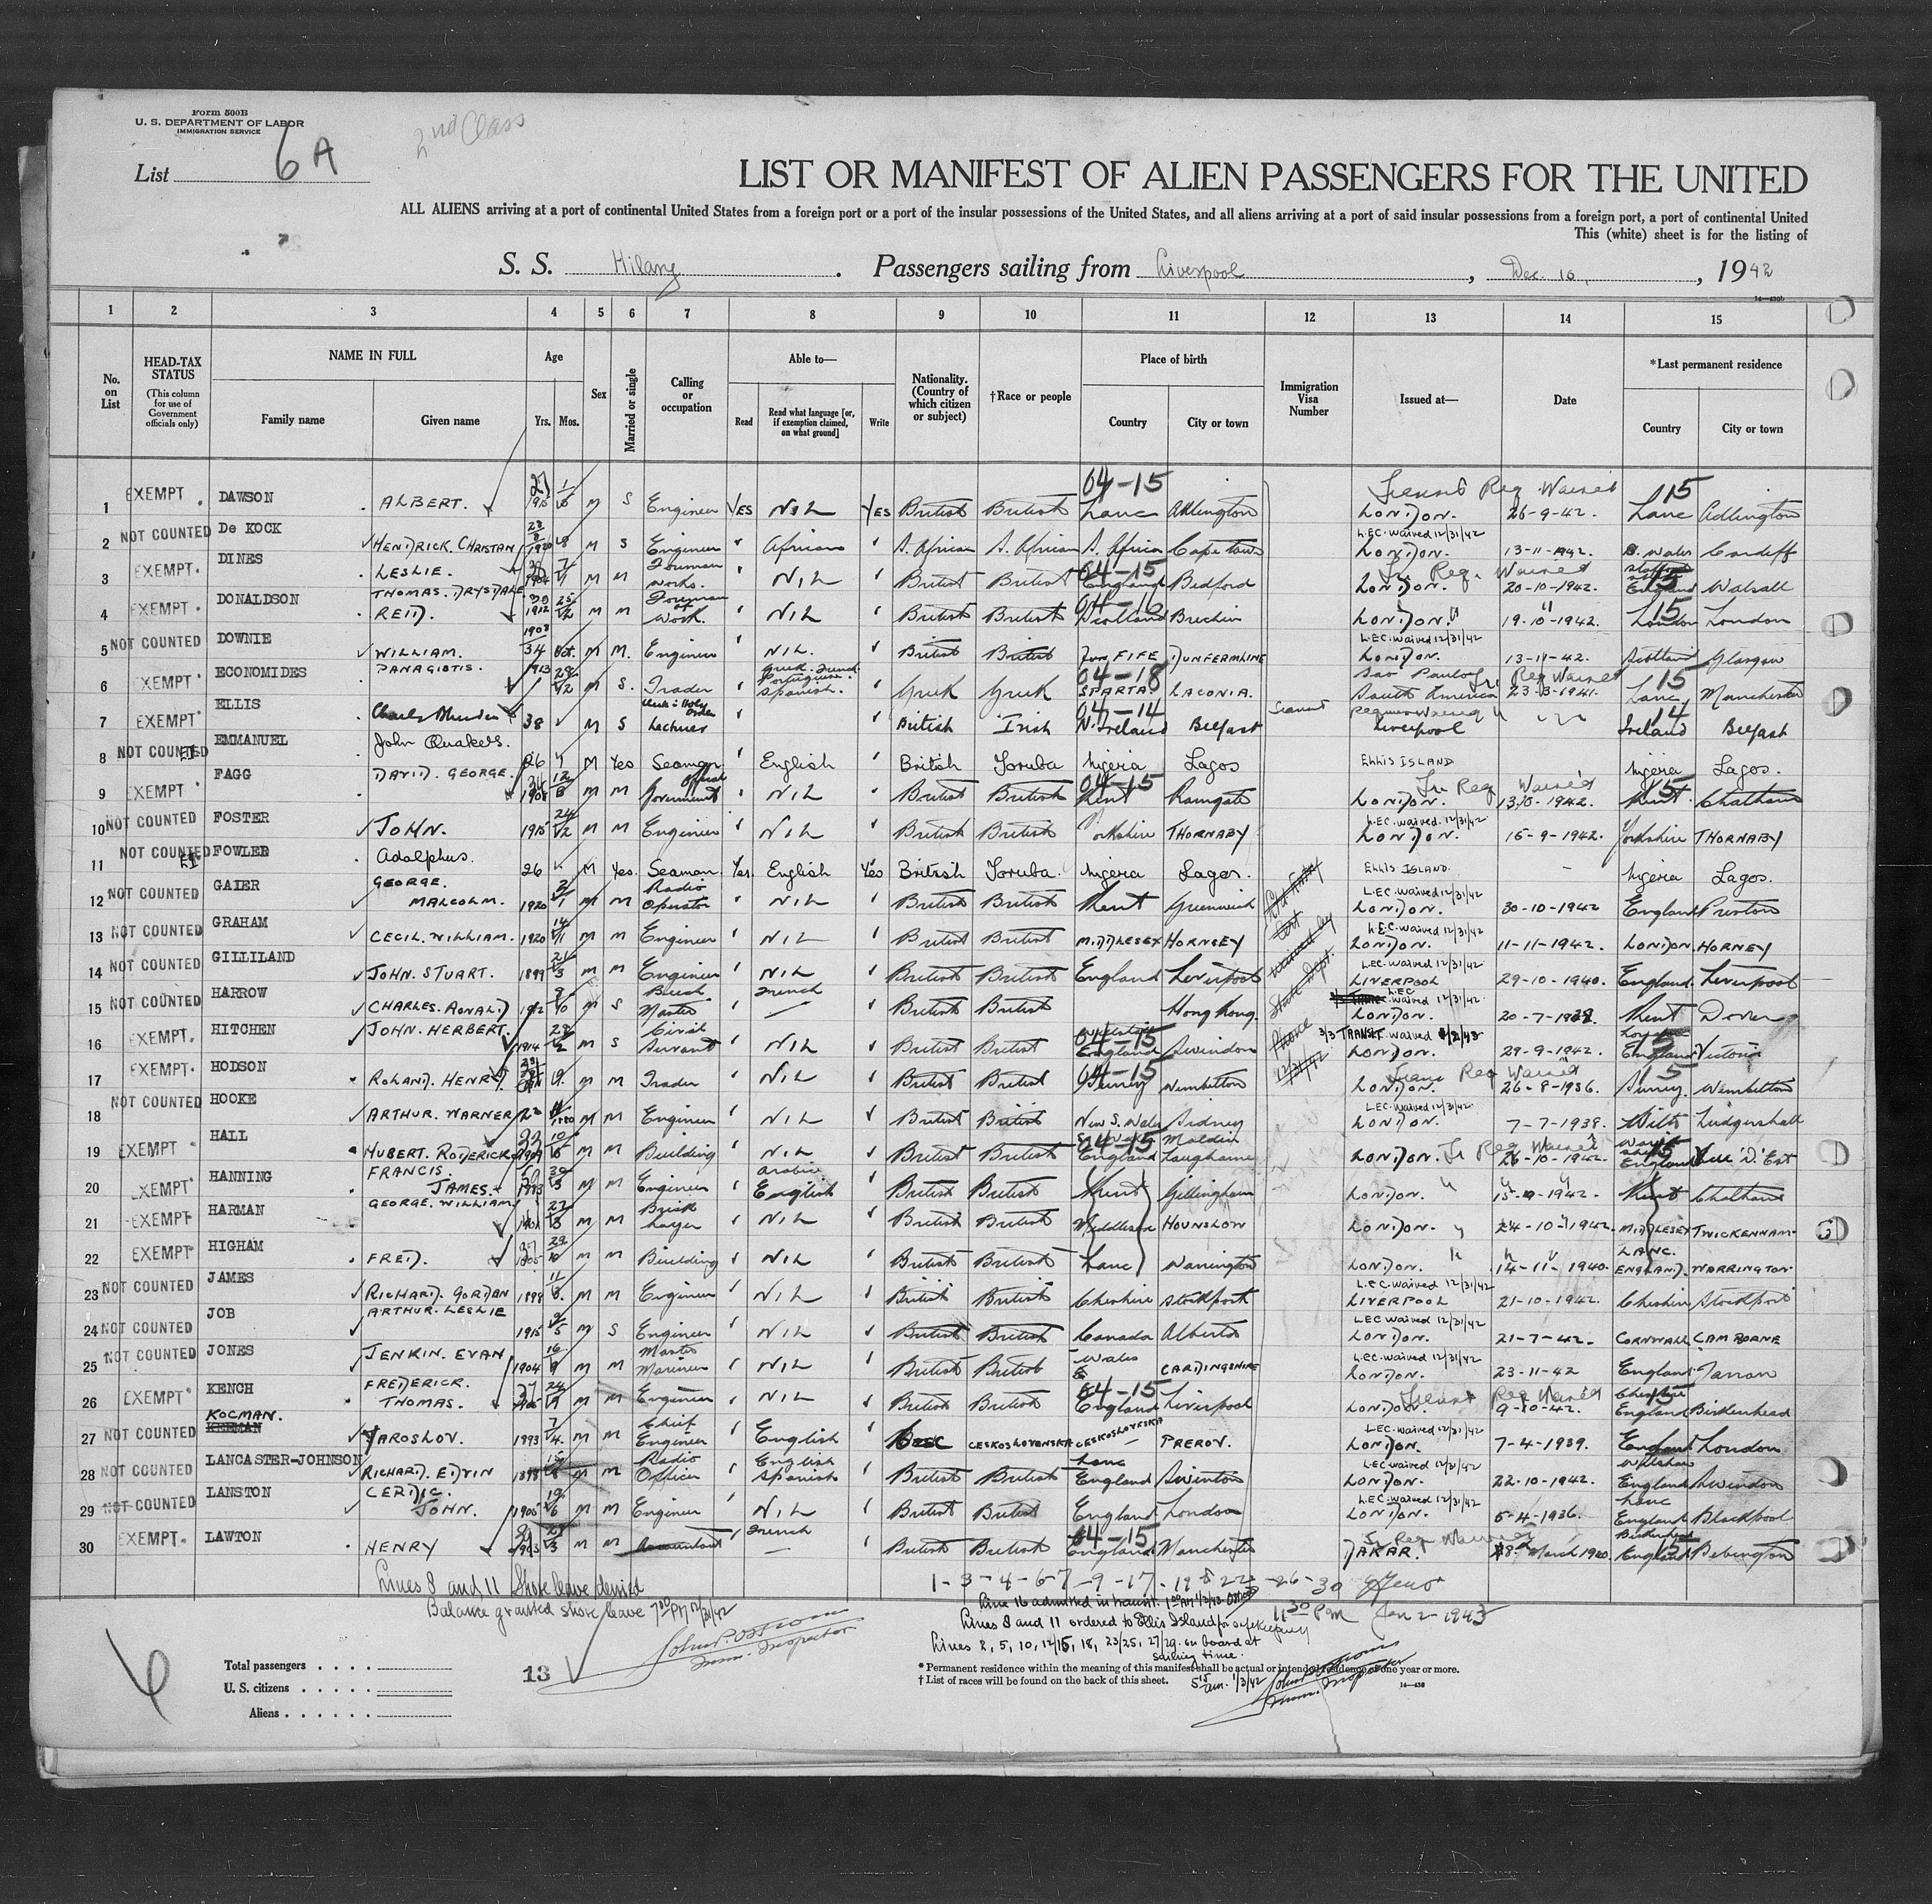 Form 500B
U. S. DEPARTMENT OF LABOR
IMMIGRATION SERVICE
2nd Class
List 6A
LIST OR MANIFEST OF ALIEN PASSENGERS FOR THE UNITED
ALL ALIENS arriving at a port of continental United States from a foreign port or a port of the insular possessions of the United States, and all aliens arriving at a port of said insular possessions from a foreign port, a port of continental United
This (white) sheet is for the listing of
S. S. Hilary. Passengers sailing from Liverpool, Dec. 10, 1942
14—430b
1 2 3 4 5 6 7 8 9 10 11 12 13 14 15
No. on List
HEAD-TAX STATUS (This column for use of Government officials only)
NAME IN FULL Family name Given name
Age Yrs. Mos.
Sex
Married or single
Calling or occupation
Able to— Read Read what language [or, if exemption claimed, on what ground] Write
Nationality. (Country of which citizen or subject)
†Race or people
Place of birth Country City or town
Immigration Visa Number
Issued at—
Date
*Last permanent residence Country City or town
1 EXEMPT DAWSON ALBERT. 27 1915 M S Engineer YES NIL YES British British 04-15 Lanc Adlington LONDON. 26-9-42. 15 Lanc Adlington
2 NOT COUNTED De KOCK HENDRICK CHRISTAN 1920 M S Engineer African S. African S. African S. Africa Cape town L.E.C. waived 12/31/42 LONDON. 13-11-1942. S. Wales Cardiff
3 EXEMPT DINES LESLIE. 1904 M M Foreman works. NIL British British 04-15 England Bedford LONDON. 20-10-1942. 15 England Walsall
4 EXEMPT DONALDSON THOMAS. DRYSDALE REID. 1912 M M Foreman of Work. NIL British British 04-16 Scotland Brechin LONDON. 19-10-1942. 15 London London
5 NOT COUNTED DOWNIE WILLIAM. 1908 34 Oct. M M. Engineer NIL. British British FIFE DUNFERMLINE L.E.C. waived 12/31/42 LONDON. 13-11-42. Scotland Glasgow
6 EXEMPT ECONOMIDES PANAGIOTIS. 1913 M S. Trader Greek. French Portuguese. Spanish. Greek Greek 04-18 SPARTA. LACONIA. Sao Paulo South America 23-3-1941. 15 Lanc Manchester
7 EXEMPT ELLIS Charles 38 M S Clerk in Holy Orders Lecturer British Irish 04-14 N. Ireland Belfast Liverpool 14 Ireland Belfast
8 NOT COUNTED E.I. EMMANUEL John Quakers. 26 M Yes Seaman English British Yoruba Nigeria Lagos ELLIS ISLAND Nigeria Lagos.
9 EXEMPT FAGG DAVID. GEORGE. 1908 M M Government Official NIL British British 04-15 Kent Ramsgate LONDON. 1942. 15 Kent. Chatham
10 NOT COUNTED FOSTER JOHN. 1915 M M Engineer NIL British British Yorkshire THORNABY L.E.C. waived 12/31/42 LONDON. 15-9-1942. Yorkshire THORNABY
11 NOT COUNTED E.I. FOWLER Adolphus. 26 M Yes. Seaman Yes. English Yes British Yoruba. Nigeria Lagos. ELLIS ISLAND. — Nigeria Lagos.
12 NOT COUNTED GAIER GEORGE. MALCOLM. 1920 M M Radio Operator NIL British British Kent Greenwich L.E.C. waived 12/31/42 LONDON. 30-10-1942 England Preston
13 NOT COUNTED GRAHAM CECIL. WILLIAM. 1920 M M Engineer NIL British British MIDDLESEX HORNSEY L.E.C. waived 12/31/42 LONDON. 11-11-1942. LONDON. HORNEY
14 NOT COUNTED GILLILAND JOHN. STUART. 1899 M M Engineer NIL British British England Liverpool L.E.C. waived 12/31/42 LIVERPOOL 29-10-1940. England Liverpool
15 NOT COUNTED HARROW CHARLES. RONALD 1912 M S Master French — British British Hong Kong. L.E.C waived 12/31/42 LONDON. Kent Dover
16 EXEMPT. HITCHEN JOHN. HERBERT. 1914 M S Civil Servant NIL British British 04-15 England Swindon 3/3 TRANSIT. waived LONDON. 29-9-1942. England Victoria
17 EXEMPT HODSON ROLAND. HENRY. M M Trader NIL British British 04-15 Surrey Wimbledon LONDON. 26-8-1936. 15 Surrey. Wimbledon
18 NOT COUNTED HOOKE ARTHUR. WARNER 1880 M M Engineer NIL British British New S. Wales Sidney L.E.C. waived 12/31/42 LONDON. 7-7-1939. Wilts Ludgershall
19 EXEMPT HALL HUBERT. RODERICK 1909 M M Building NIL British British 04-15 England Laugharne LONDON. 26-10-1942. 15 England
20 EXEMPT HANNING FRANCIS. JAMES. 1893 M M Engineer Arabic English British British Kent Gillingham LONDON. 1942. Kent Chatham
21 EXEMPT HARMAN GEORGE. WILLIAM. M M Brick Layer NIL British British Middlesex HOUNSLOW LONDON. 24-10-1942. MIDDLESEX TWICKENHAM.
22 EXEMPT HIGHAM FRED. 1905 M M Building NIL British British Lanc Warrington LONDON. 14-11-1940. LANC. ENGLAND. WARRINGTON
23 NOT COUNTED JAMES RICHARD. GORDAN 1898 M M Engineer NIL British British Cheshire Stockport L.E.C. waived 12/31/42 LIVERPOOL 21-10-1942. Cheshire Stockport
24 NOT COUNTED JOB ARTHUR. LESLIE 1915 M S Engineer NIL British British Canada Alberta L.E.C. waived 12/31/42 LONDON. 21-7-42. CORNWALL CAMBORNE
25 NOT COUNTED JONES JENKIN. EVAN 1904 M M Master Mariner NIL British British Wales CARDINGSHIRE L.E.C. waived 12/31/42 LONDON. 23-11-42 England
26 EXEMPT KENCH FREDERICK. THOMAS. 1905 M M Engineer NIL British British 04-15 England Liverpool LONDON. 9-10-42. Cheshire 15 England Birkenhead
27 NOT COUNTED KOCMAN. YAROSLOV. 1893 M M Chief Engineer English CESKOSLOVENSKA CESKOSLOVESKA — PREROV. L.E.C. waived 12/31/42 LONDON. 7-4-1939. England London
28 NOT COUNTED LANCASTER-JOHNSON RICHARD. EDVIN 1898 M M Radio Officer English Spanish British British Lanc England Swinton L.E.C. waived 12/31/42 LONDON. 22-10-1942. England Swindon
29 NOT COUNTED LANSTON CERDIC. JOHN. 1905 M M Engineer NIL British British England London L.E.C. waived 12/31/42 LONDON. 5-4-1936. Lanc England Blackpool
30 EXEMPT LAWTON HENRY M M Accountant French — British British 04-15 England. Manchester DAKAR. March 1940. Birkenhead 15 England Bebington
Old Entry
waived by
State Dept.
Phone
12/31/42
Lines 8 and 11 Shore leave denied
Balance granted shore leave 7:00 PM 12/31/42
Imm. Inspector
1-3-4-6-7-9-17-19 22-26-30
Line 16 admitted in transit.
11:30 PM Jan 2-1943
Lines 8 and 11 ordered to Ellis Island for safekeeping
Lines 2, 5, 10, 12/15, 18, 23/25, 27/29. on board at
sailing time.
5:15 am. 1/3/42
Imm. Inspector
Total passengers
U. S. citizens
Aliens
13
*Permanent residence within the meaning of this manifest shall be actual or intended residence of one year or more.
†List of races will be found on the back of this sheet.
14—430